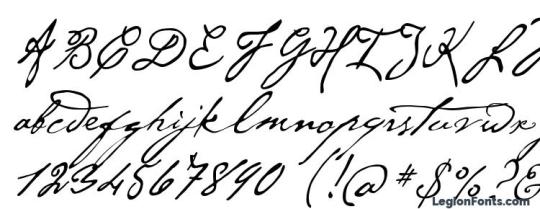 A B C D E F G H I J K L
abcdefghijklmnopqrstuvwx
1234567890 (!@#$%?
LegionFonts.com